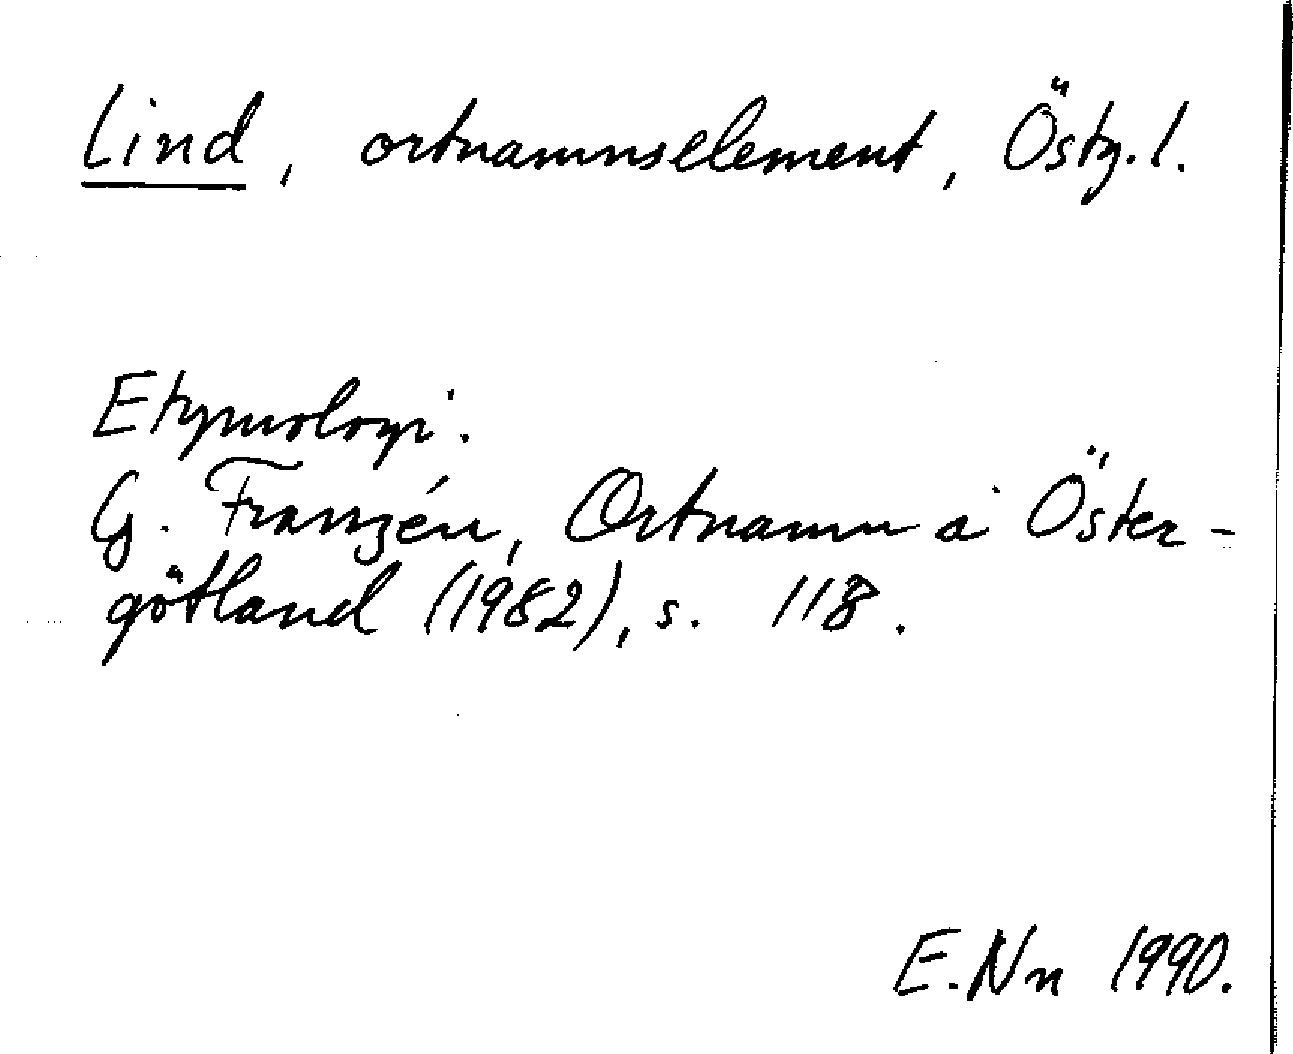 Lind, ortnamnselement, Östg.l.
Etymologi.
G. Franzén, Ortnamn i Öster-
götland (1982), s. 118.
E.Nn 1990.